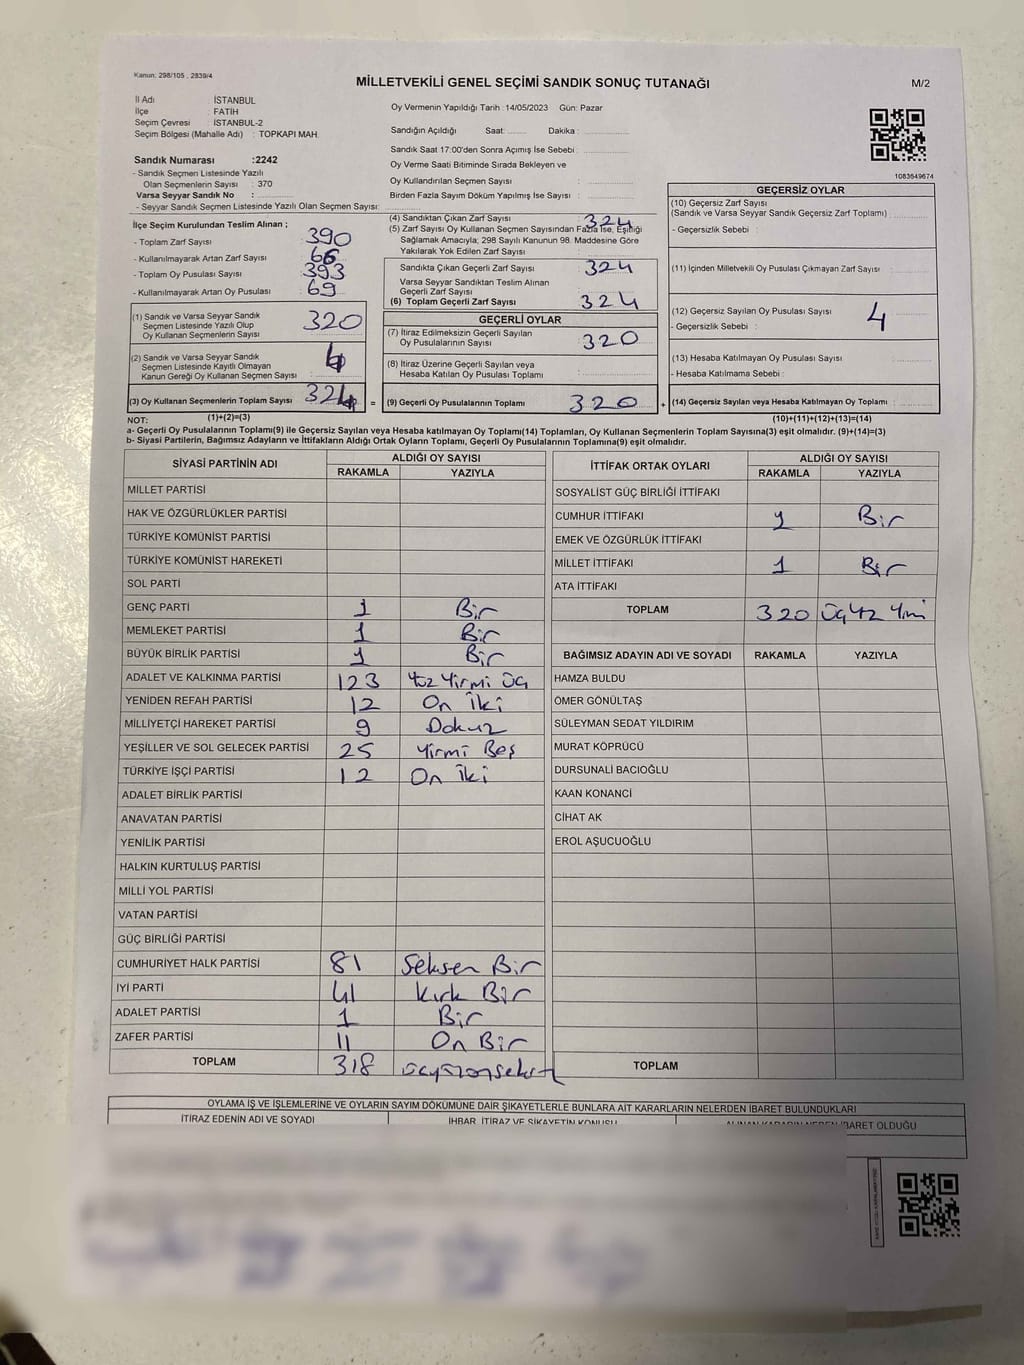 Kanun: 298/105 , 2839/4
MİLLETVEKİLİ GENEL SEÇİMİ SANDIK SONUÇ TUTANAĞI
M/2
İl Adı : İSTANBUL
İlçe : FATİH
Seçim Çevresi : İSTANBUL-2
Seçim Bölgesi (Mahalle Adı) : TOPKAPI MAH.
Sandık Numarası :2242
- Sandık Seçmen Listesinde Yazılı
Olan Seçmenlerin Sayısı : 370
Varsa Seyyar Sandık No :
- Seyyar Sandık Seçmen Listesinde Yazılı Olan Seçmen Sayısı:
Oy Vermenin Yapıldığı Tarih : 14/05/2023 Gün: Pazar
Sandığın Açıldığı Saat: Dakika :
Sandık Saat 17:00'den Sonra Açımış İse Sebebi :
Oy Verme Saati Bitiminde Sırada Bekleyen ve
Oy Kullandırılan Seçmen Sayısı :
Birden Fazla Sayım Döküm Yapılmış İse Sayısı :
1083649674
İlçe Seçim Kurulundan Teslim Alınan ;
- Toplam Zarf Sayısı : 390
- Kullanılmayarak Artan Zarf Sayısı : 66
- Toplam Oy Pusulası Sayısı : 393
- Kullanılmayarak Artan Oy Pusulası : 69
(1) Sandık ve Varsa Seyyar Sandık
Seçmen Listesinde Yazılı Olup
Oy Kullanan Seçmenlerin Sayısı : 320
(2) Sandık ve Varsa Seyyar Sandık
Seçmen Listesinde Kayıtlı Olmayan
Kanun Gereği Oy Kullanan Seçmen Sayısı : 4
(3) Oy Kullanan Seçmenlerin Toplam Sayısı 324 =
(1)+(2)=(3)
(4) Sandıktan Çıkan Zarf Sayısı : 324
(5) Zarf Sayısı Oy Kullanan Seçmen Sayısından Fazla İse, Eşitliği
Sağlamak Amacıyla; 298 Sayılı Kanunun 98. Maddesine Göre
Yakılarak Yok Edilen Zarf Sayısı :
Sandıkta Çıkan Geçerli Zarf Sayısı : 324
Varsa Seyyar Sandıktan Teslim Alınan
Geçerli Zarf Sayısı :
(6) Toplam Geçerli Zarf Sayısı : 324
GEÇERLİ OYLAR
(7) İtiraz Edilmeksizin Geçerli Sayılan
Oy Pusulalarının Sayısı : 320
(8) İtiraz Üzerine Geçerli Sayılan veya
Hesaba Katılan Oy Pusulası Toplamı :
(9) Geçerli Oy Pusulalarının Toplamı 320 +
GEÇERSİZ OYLAR
(10) Geçersiz Zarf Sayısı
(Sandık ve Varsa Seyyar Sandık Geçersiz Zarf Toplamı) :
- Geçersizlik Sebebi :
(11) İçinden Milletvekili Oy Pusulası Çıkmayan Zarf Sayısı :
(12) Geçersiz Sayılan Oy Pusulası Sayısı : 4
- Geçersizlik Sebebi :
(13) Hesaba Katılmayan Oy Pusulası Sayısı :
- Hesaba Katılmama Sebebi :
(14) Geçersiz Sayılan veya Hesaba Katılmayan Oy Toplamı :
(10)+(11)+(12)+(13)=(14)
NOT:
a- Geçerli Oy Pusulalarının Toplamı(9) ile Geçersiz Sayılan veya Hesaba katılmayan Oy Toplamı(14) Toplamları, Oy Kullanan Seçmenlerin Toplam Sayısına(3) eşit olmalıdır. (9)+(14)=(3)
b- Siyasi Partilerin, Bağımsız Adayların ve İttifakların Aldığı Ortak Oyların Toplamı, Geçerli Oy Pusulalarının Toplamına(9) eşit olmalıdır.
SİYASİ PARTİNİN ADI ALDIĞI OY SAYISI
RAKAMLA YAZIYLA
MİLLET PARTİSİ
HAK VE ÖZGÜRLÜKLER PARTİSİ
TÜRKİYE KOMÜNİST PARTİSİ
TÜRKİYE KOMÜNİST HAREKETİ
SOL PARTİ
GENÇ PARTİ 1 Bir
MEMLEKET PARTİSİ 1 Bir
BÜYÜK BİRLİK PARTİSİ 1 Bir
ADALET VE KALKINMA PARTİSİ 123 Yüz Yirmi Üç
YENİDEN REFAH PARTİSİ 12 On İki
MİLLİYETÇİ HAREKET PARTİSİ 9 Dokuz
YEŞİLLER VE SOL GELECEK PARTİSİ 25 Yirmi Beş
TÜRKİYE İŞÇİ PARTİSİ 12 On İki
ADALET BİRLİK PARTİSİ
ANAVATAN PARTİSİ
YENİLİK PARTİSİ
HALKIN KURTULUŞ PARTİSİ
MİLLİ YOL PARTİSİ
VATAN PARTİSİ
GÜÇ BİRLİĞİ PARTİSİ
CUMHURİYET HALK PARTİSİ 81 Seksen Bir
İYİ PARTİ 41 Kırk Bir
ADALET PARTİSİ 1 Bir
ZAFER PARTİSİ 11 On Bir
TOPLAM 318
İTTİFAK ORTAK OYLARI ALDIĞI OY SAYISI
RAKAMLA YAZIYLA
SOSYALİST GÜÇ BİRLİĞİ İTTİFAKI
CUMHUR İTTİFAKI 1 Bir
EMEK VE ÖZGÜRLÜK İTTİFAKI
MİLLET İTTİFAKI 1 Bir
ATA İTTİFAKI
TOPLAM 320 Üç Yüz
BAĞIMSIZ ADAYIN ADI VE SOYADI RAKAMLA YAZIYLA
HAMZA BULDU
ÖMER GÖNÜLTAŞ
SÜLEYMAN SEDAT YILDIRIM
MURAT KÖPRÜCÜ
DURSUNALİ BACIOĞLU
KAAN KONANCİ
CİHAT AK
EROL AŞUCUOĞLU
TOPLAM
OYLAMA İŞ VE İŞLEMLERİNE VE OYLARIN SAYIM DÖKÜMÜNE DAİR ŞİKAYETLERLE BUNLARA AİT KARARLARIN NELERDEN İBARET BULUNDUKLARI
İTİRAZ EDENİN ADI VE SOYADI İHBAR, İTİRAZ VE ŞİKAYETİN KONUSU ALINAN KARARIN NEDEN İBARET OLDUĞU